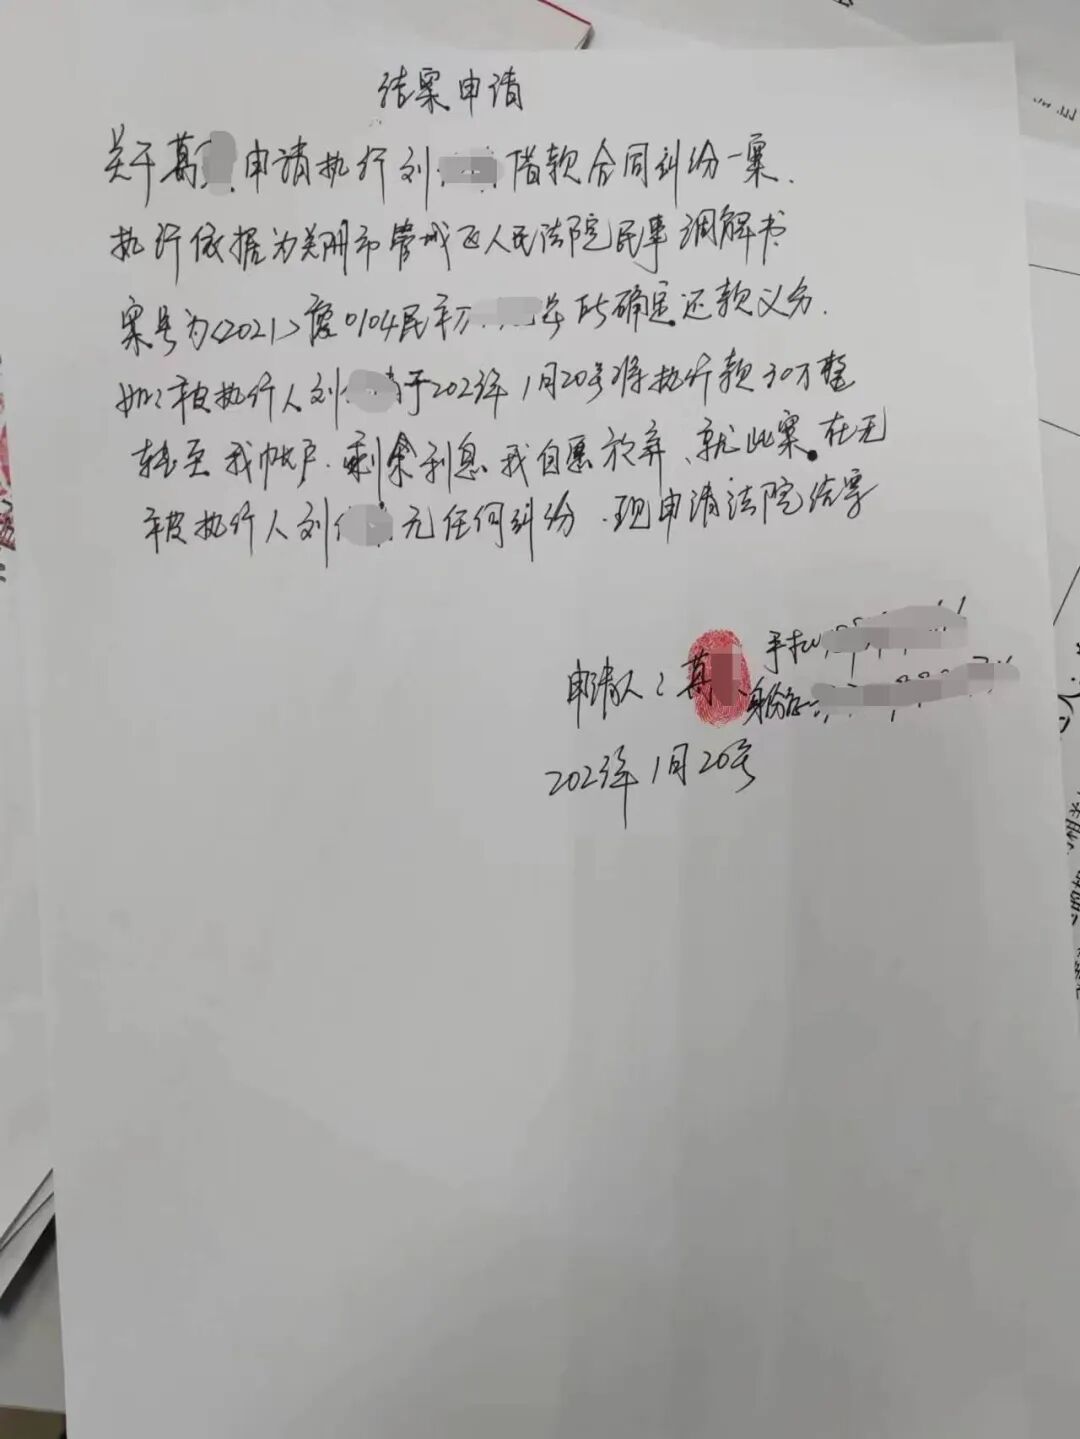 结案申请
关于葛 申请执行刘 借款合同纠纷一案.
执行依据为 市管城区人民法院民事调解书
案号为<2021>豫0104民 号所确定还款义务.
如被执行人刘 于2023年1月20号将执行款30万整
转至我帐户.剩余利息我自愿放弃、就此案.在无
被执行人刘 无任何纠纷.现申请法院结案
申请人:葛 手机
身份证
2023年1月20号